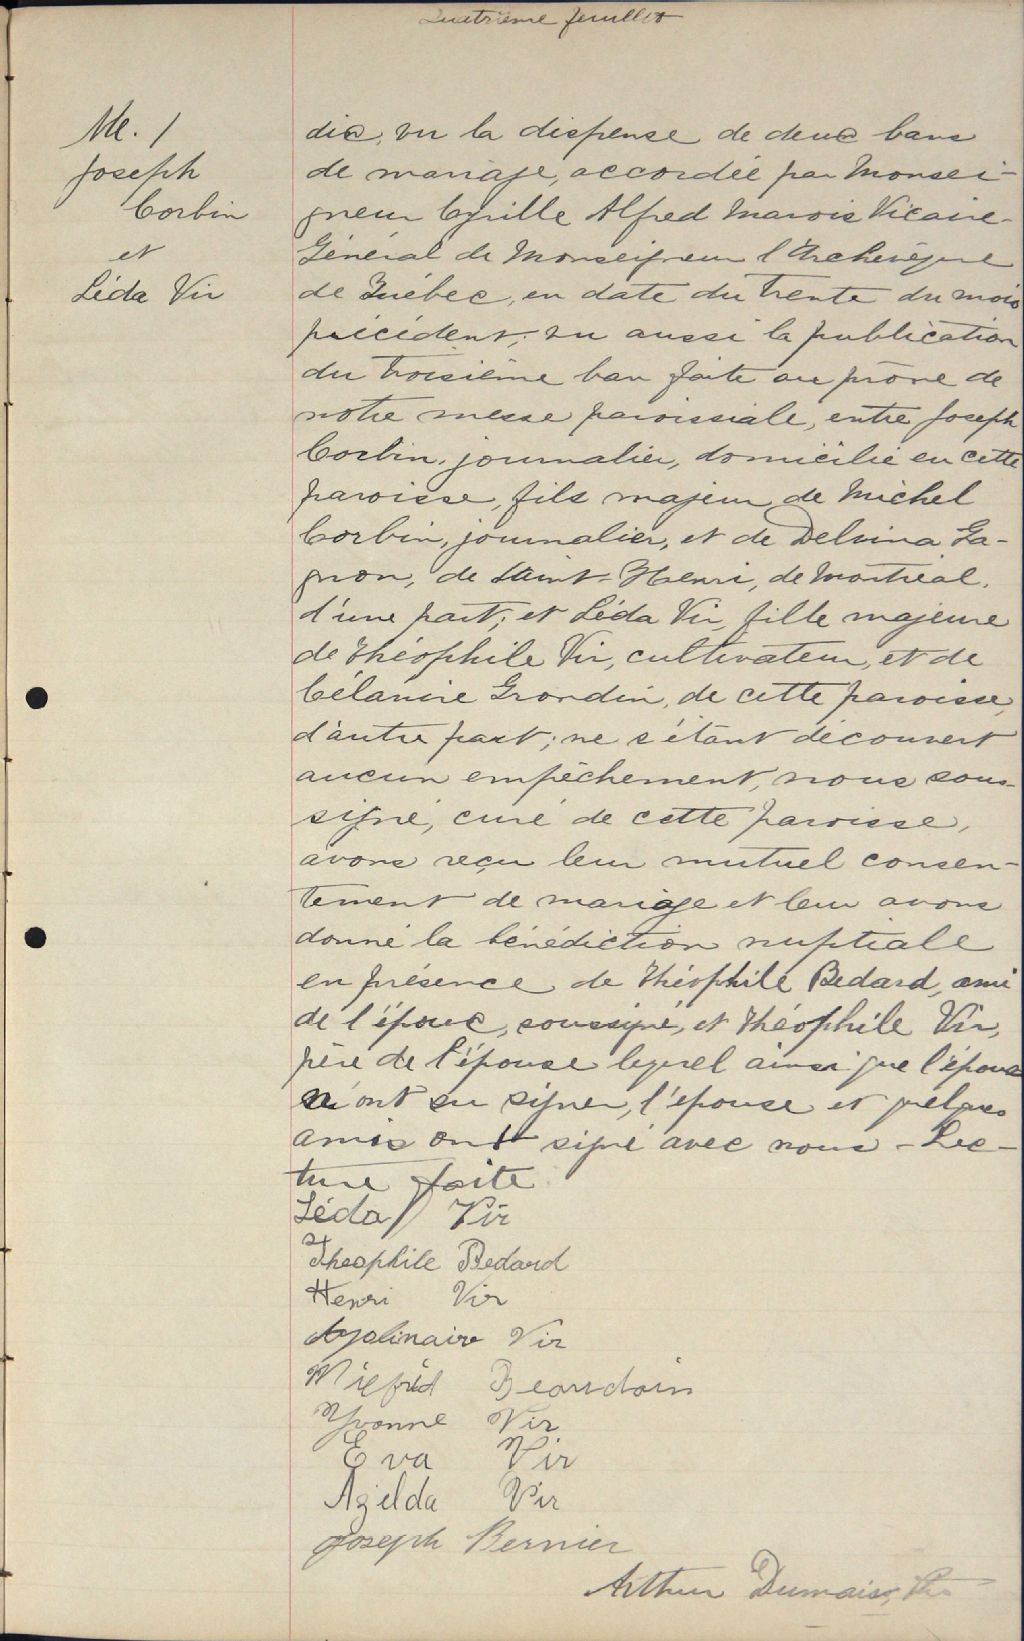 Quatrième feuillet
M. 1
Joseph
Corbin
et
Léda Vir
dix, vu la dispense de deux bans
de mariage, accordée par Monsei-
gneur Cyrille Alfred Marois Vicaire-
Général de Monseigneur l'Archevêque
de Québec, en date du trente du mois
précédent; vu aussi la publication
du troisième ban faite au prône de
notre messe paroissiale, entre Joseph
Corbin, journalier, domicilié en cette
paroisse, fils majeur de Michel
Corbin, journalier, et de Delvina Ga-
gnon, de Saint-Henri, de Montréal,
d'une part; et Léda Vir, fille majeure
de Théophile Vir, cultivateur, et de
Célanire Grondin, de cette paroisse,
d'autre part; ne s'étant découvert
aucun empêchement, nous sous-
signé, curé de cette paroisse,
avons reçu leur mutuel consen-
tement de mariage et leur avons
donné la bénédiction nuptiale
en présence de Théophile Bedard, ami
de l'époux, soussigné, et Théophile Vir,
père de l'épouse lequel ainsi que l'époux
n'ont su signer, l'épouse et quelques
amis ont signé avec nous - Lec-
ture faite.
Léda Vir
Théophile Bedard
Henri Vir
Apolinaire Vir
Wilfrid Beaudoin
Yvonne Vir
Eva Vir
Azelda Vir
Joseph Bernier
Arthur Dumais, Ptre